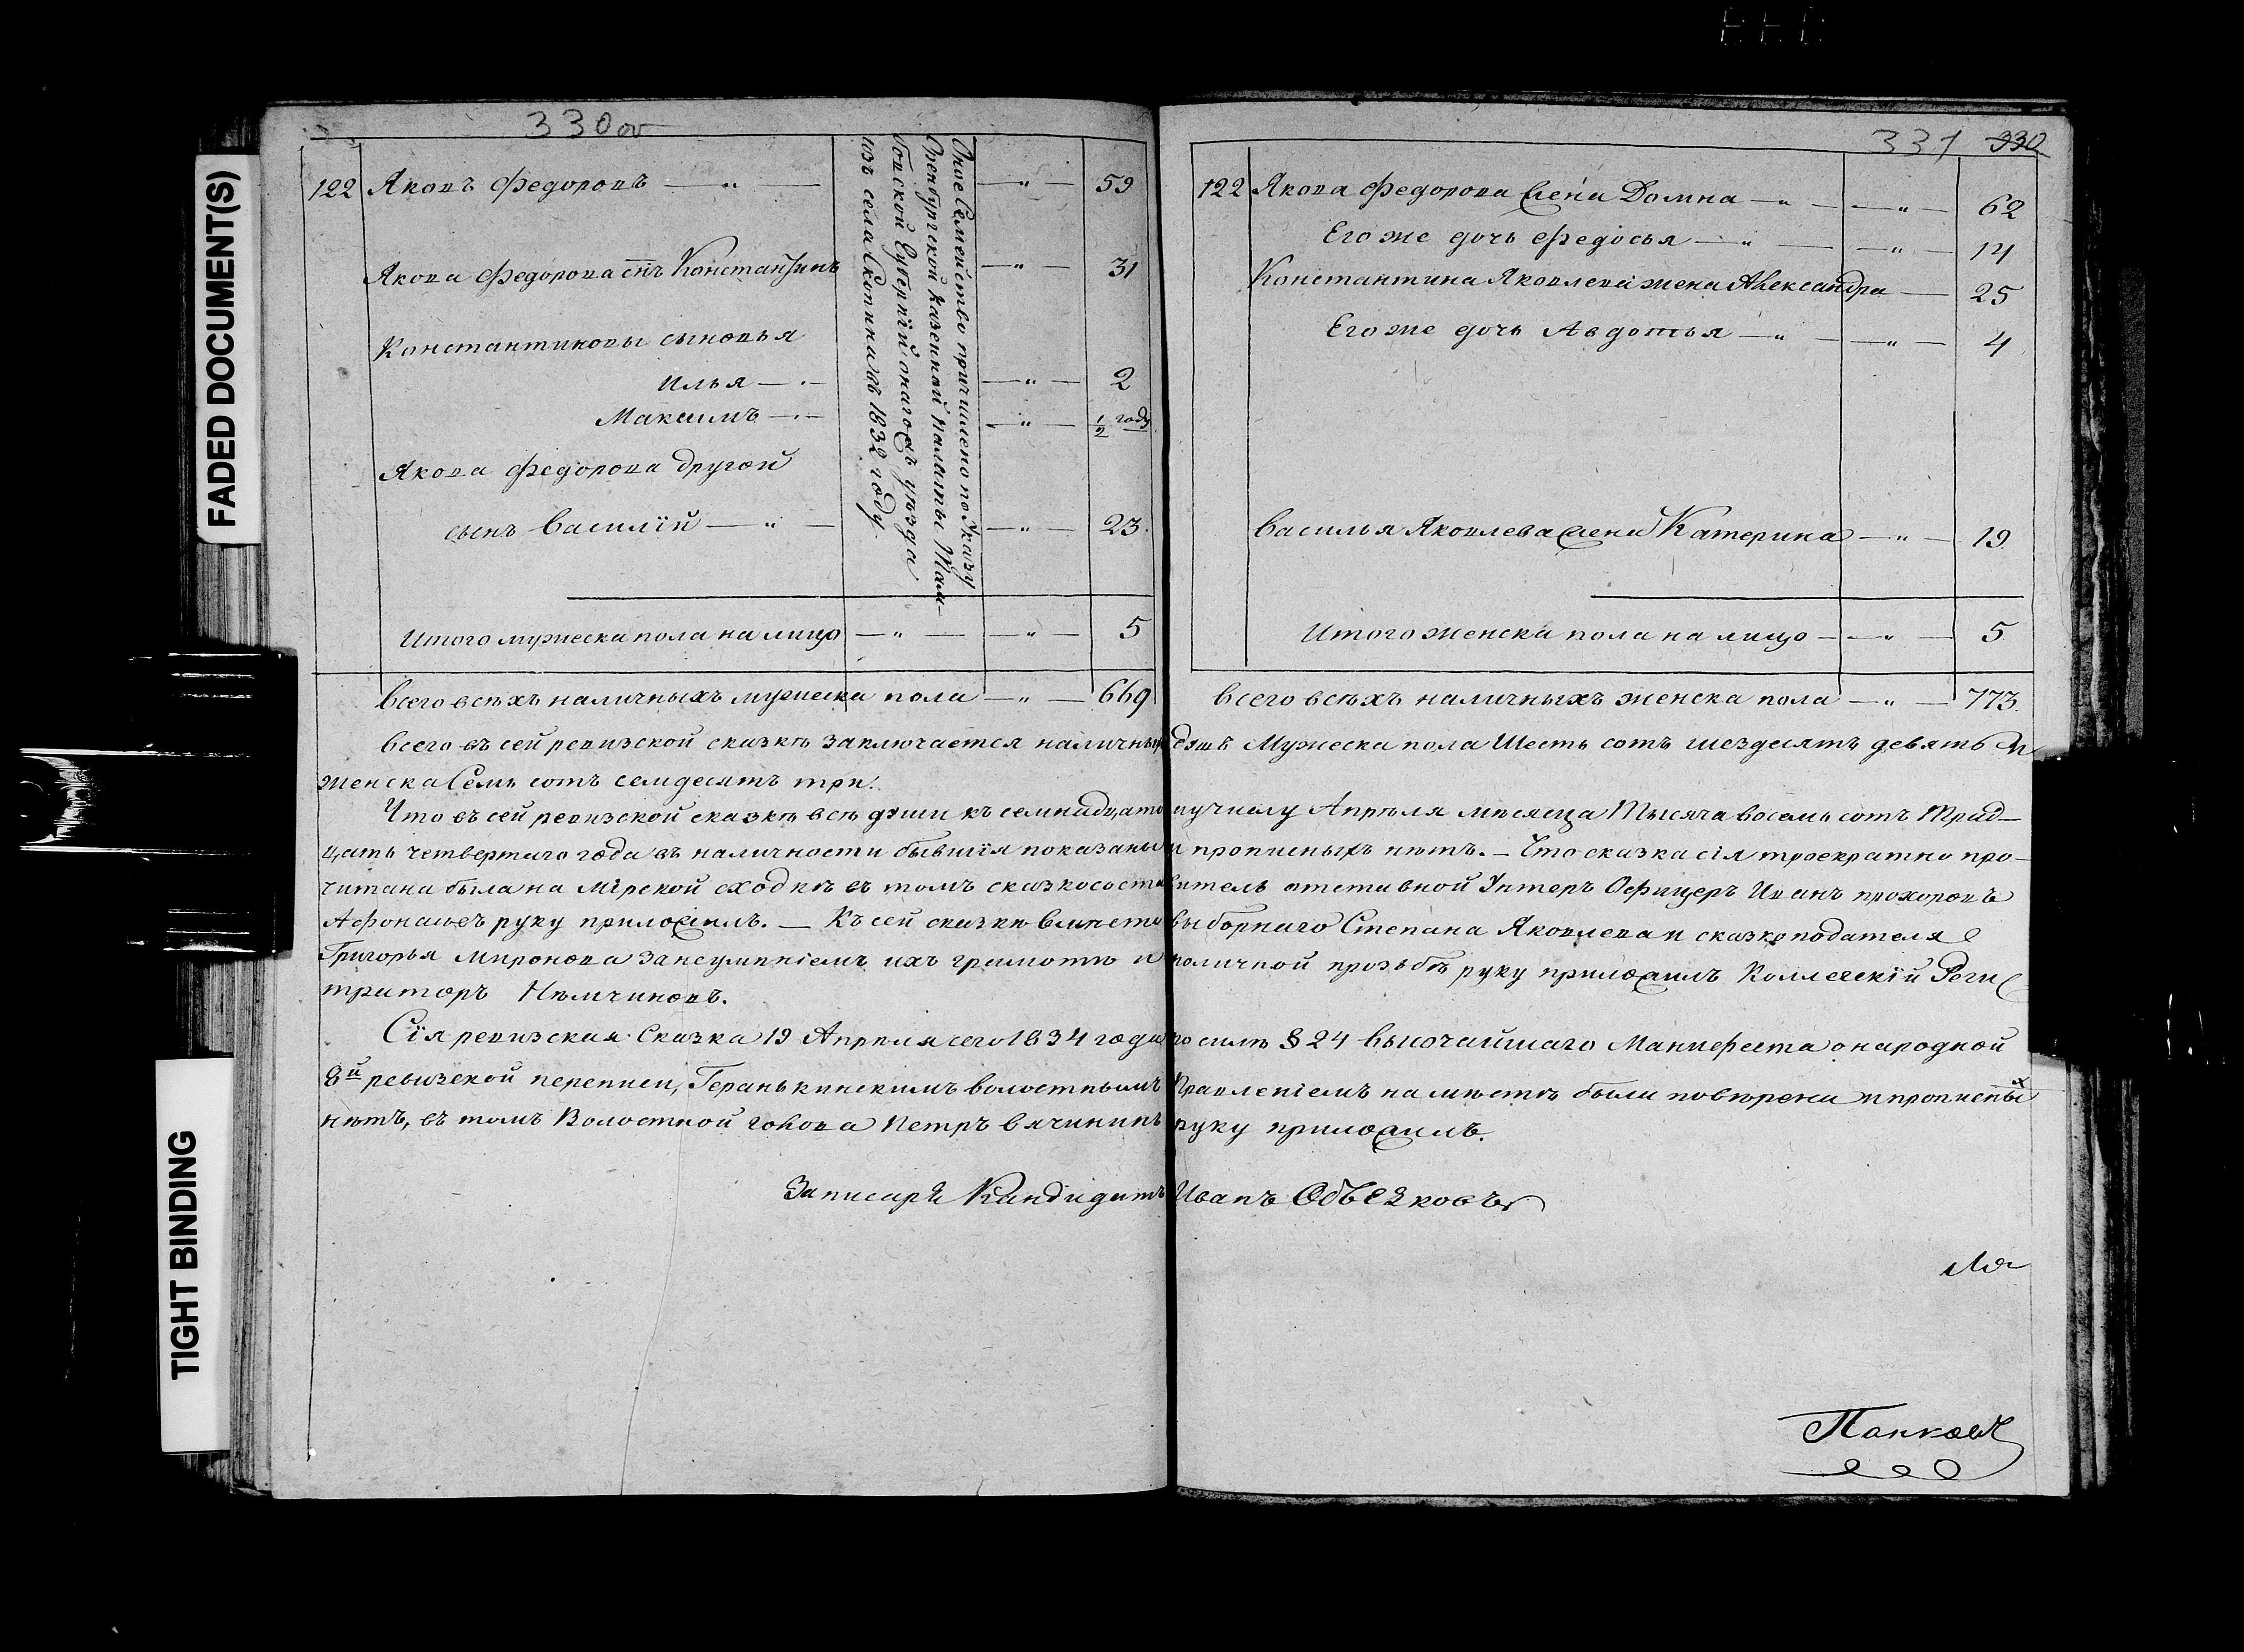 330 об
122 Яковъ Федоровъ — „ — — „ — 59
Якова Федорова снъ Константинъ — „ — 31
Константиновы сыновья
Илья — „ — 2
Максимъ — „ — 1/2 году
Якова Федорова другой
сынъ Василій — „ — — „ — 23.
Оное Семейство причислено по Указу
Оренбургской Казенной палаты Там-
бовской Губерніи онагожъ уезда
изъ села Скопина въ 1832 году
Итого мужеска пола на лицо — „ — — „ — 5
Всего всѣхъ наличныхъ мужеска пола — „ — 669
331 330
122 Якова Федорова жена Домна — „ — — „ — 62
Его же дочь Федосья — „ — — „ — 14
Константина Яковлева жена Александра — 25
Его же дочь Авдотья — „ — — „ — 4
Василья Яковлева жена Катерина — „ — 19.
Итого женска пола на лицо — — „ — 5
Всего всѣхъ наличныхъ женска пола — „ — 773.
Всего въ сей ревизской сказкѣ заключается наличныхъ душъ Мужеска пола Шесть сотъ шездесятъ девять и
женска Семь сотъ семдесятъ три.
Что въ сей ревизской сказкѣ всѣ души къ семнадцатому числу Апрѣля мѣсяца Тысяча восемь сотъ Трид-
цать четвертаго года въ наличности бывшія показаны и прописныхъ нѣтъ. — Что сказка сія троекратно про-
читана была на Мірской сходкѣ въ томъ сказкосоставитель отставной Унтеръ Офицеръ Иванъ прохоровъ
Афонасьевъ руку приложилъ. — Къ сей сказкѣ вмѣсто выборнаго Степана Яковлева и сказкоподателя
Григорья Миронова занеумѣніемъ ихъ грамотѣ и поличной прозьбѣ руку приложилъ Коллежскій Реги
траторъ Нѣмчиновъ.
Сія ревизская Сказка 19 Апрѣля сего 1834 года по силѣ § 24 высочайшаго Манифеста о народной
8й ревизской переписи, Геранькинскимъ волостнымъ Правленіемъ на мѣстѣ были повѣрены и прописныхъ
нѣтъ, въ томъ Волостной голова Петръ Вячининъ руку приложилъ.
За писаря Кандидатъ Иванъ Объедковъ
Панковъ
FADED DOCUMENT(S)
TIGHT BINDING